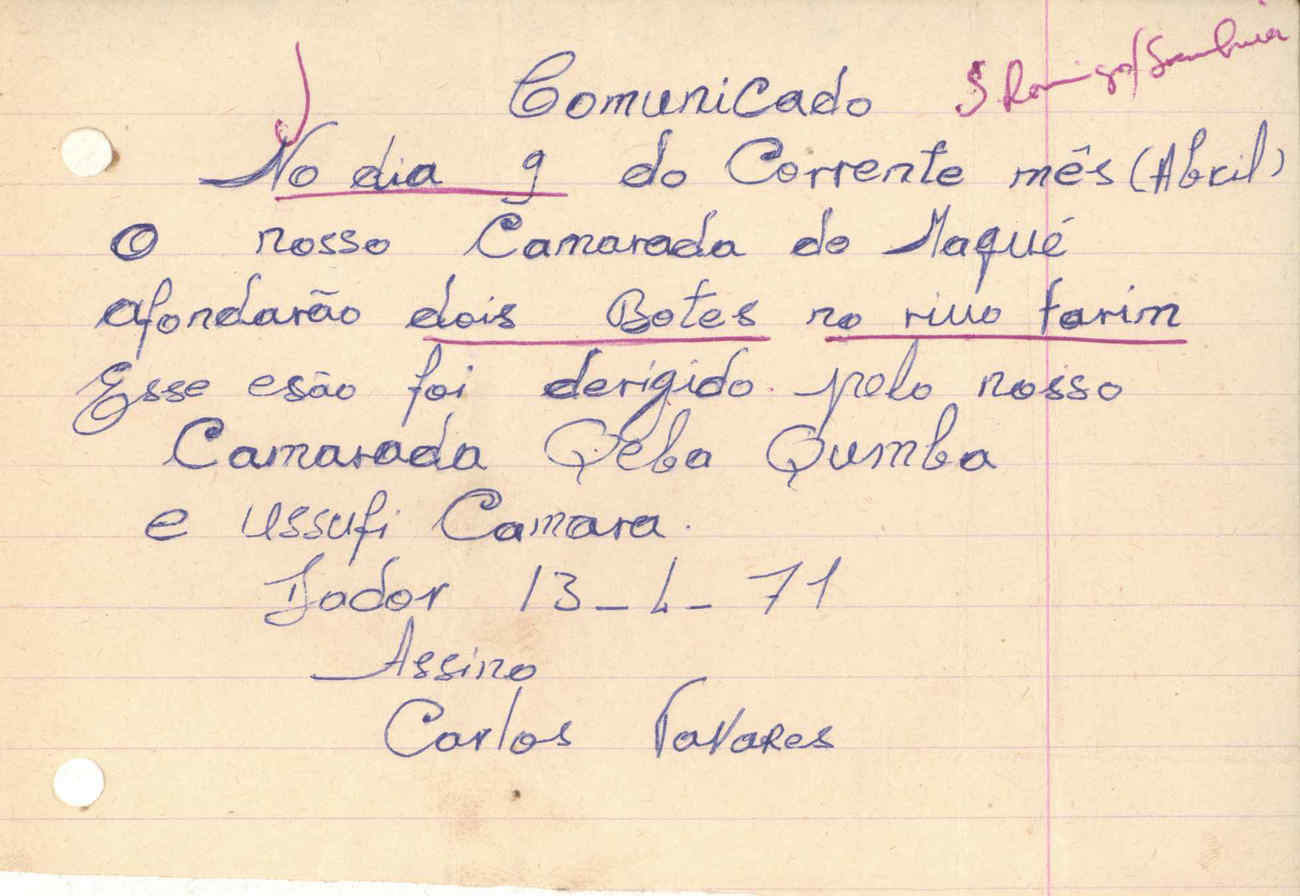 Comunicado
S. Domingos/Sambuia
No dia 9 do Corrente mês (Abril)
O nosso Camarada do Maqué
afondarão dois Botes no riuo farim
Esse esão foi derigido pelo nosso
Camarada Qeba Qumba
e Ussufi Camara.
Djador 13-4-71
Assino
Carlos Tavares